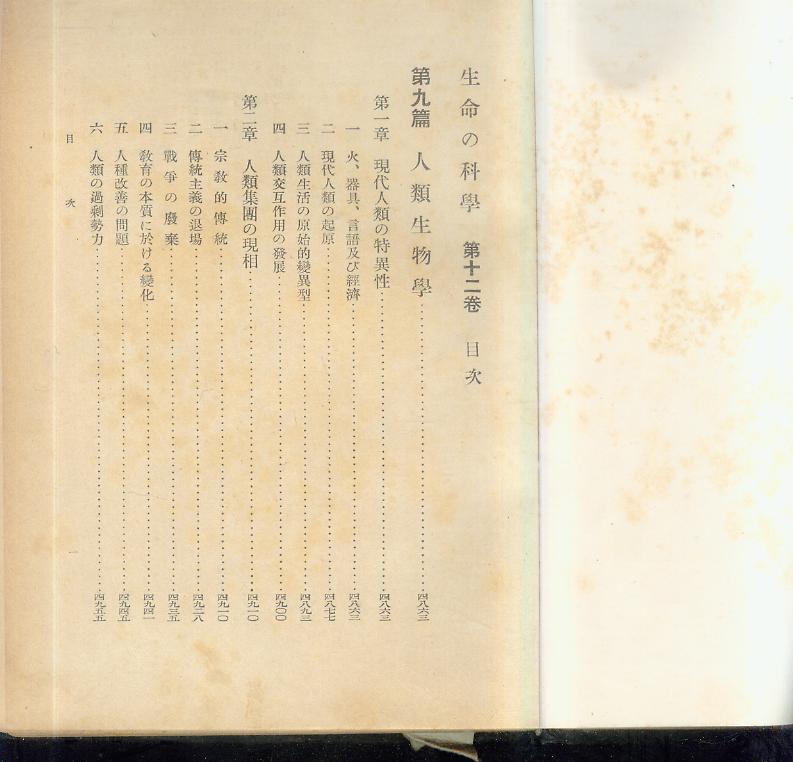 生命の科學 第十二卷 目次
第九篇 人類生物學……四八六三
第一章 現代人類の特異性……四八六三
一 火、器具、言語及び經濟……四八六三
二 現代人類の起原……四八七七
三 人類生活の原始的變異型……四八九三
四 人類交互作用の發展……四九〇〇
第二章 人類集團の現相……四九一〇
一 宗敎的傳統……四九一〇
二 傳統主義の退場……四九二八
三 戰爭の廢棄……四九三五
四 敎育の本質に於ける變化……四九四一
五 人種改善の問題……四九四五
六 人類の過剩勢力……四九五五
目次
一